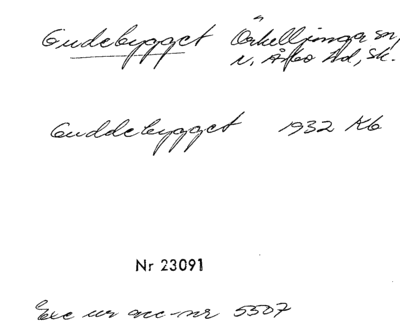 Gudebygget Örkelljunga sn,
N. Åsbo hd, Sk.
Guddebygget 1932 Kb
Nr 23091
Exc ur acc-nr 5507